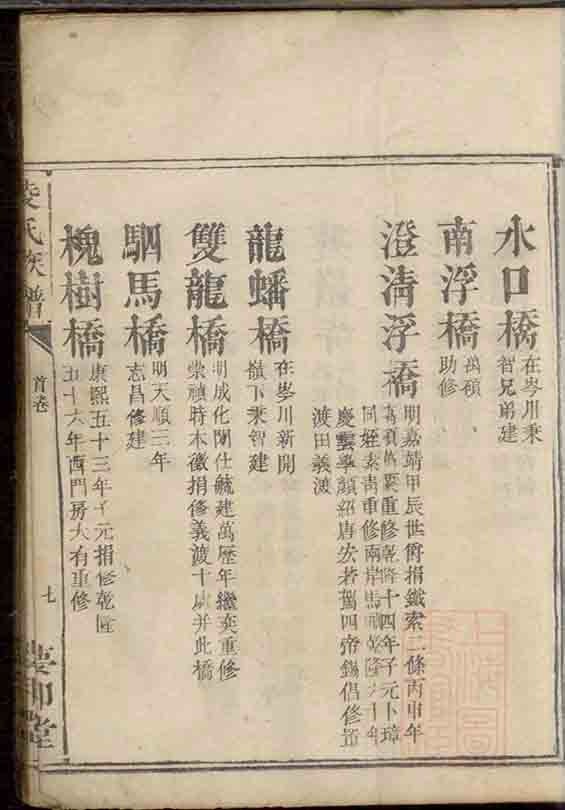 水口橋 在岑川秉
智兄弟建
南浮橋 萬碩
助修
澄清浮橋 明嘉靖甲辰世脩捐鐵索二條丙申年
重修乾隆十四年子元卜璋
同姪素青重修兩岸馬頭乾隆六十年
慶雲學顏紹唐宏若駕四帝錫倡修並
渡田義渡
龍蟠橋 在岑川新開
嶺下秉智建
雙龍橋 明成化間仕毓建萬歷年繼奕重修
崇禎時本徽捐修義渡十歲并此橋
駟馬橋 明天順三年
志昌修建
槐樹橋 康熙五十三年子元捐修乾隆
五十六年西門房大有重修
凌氏族譜
首卷
七